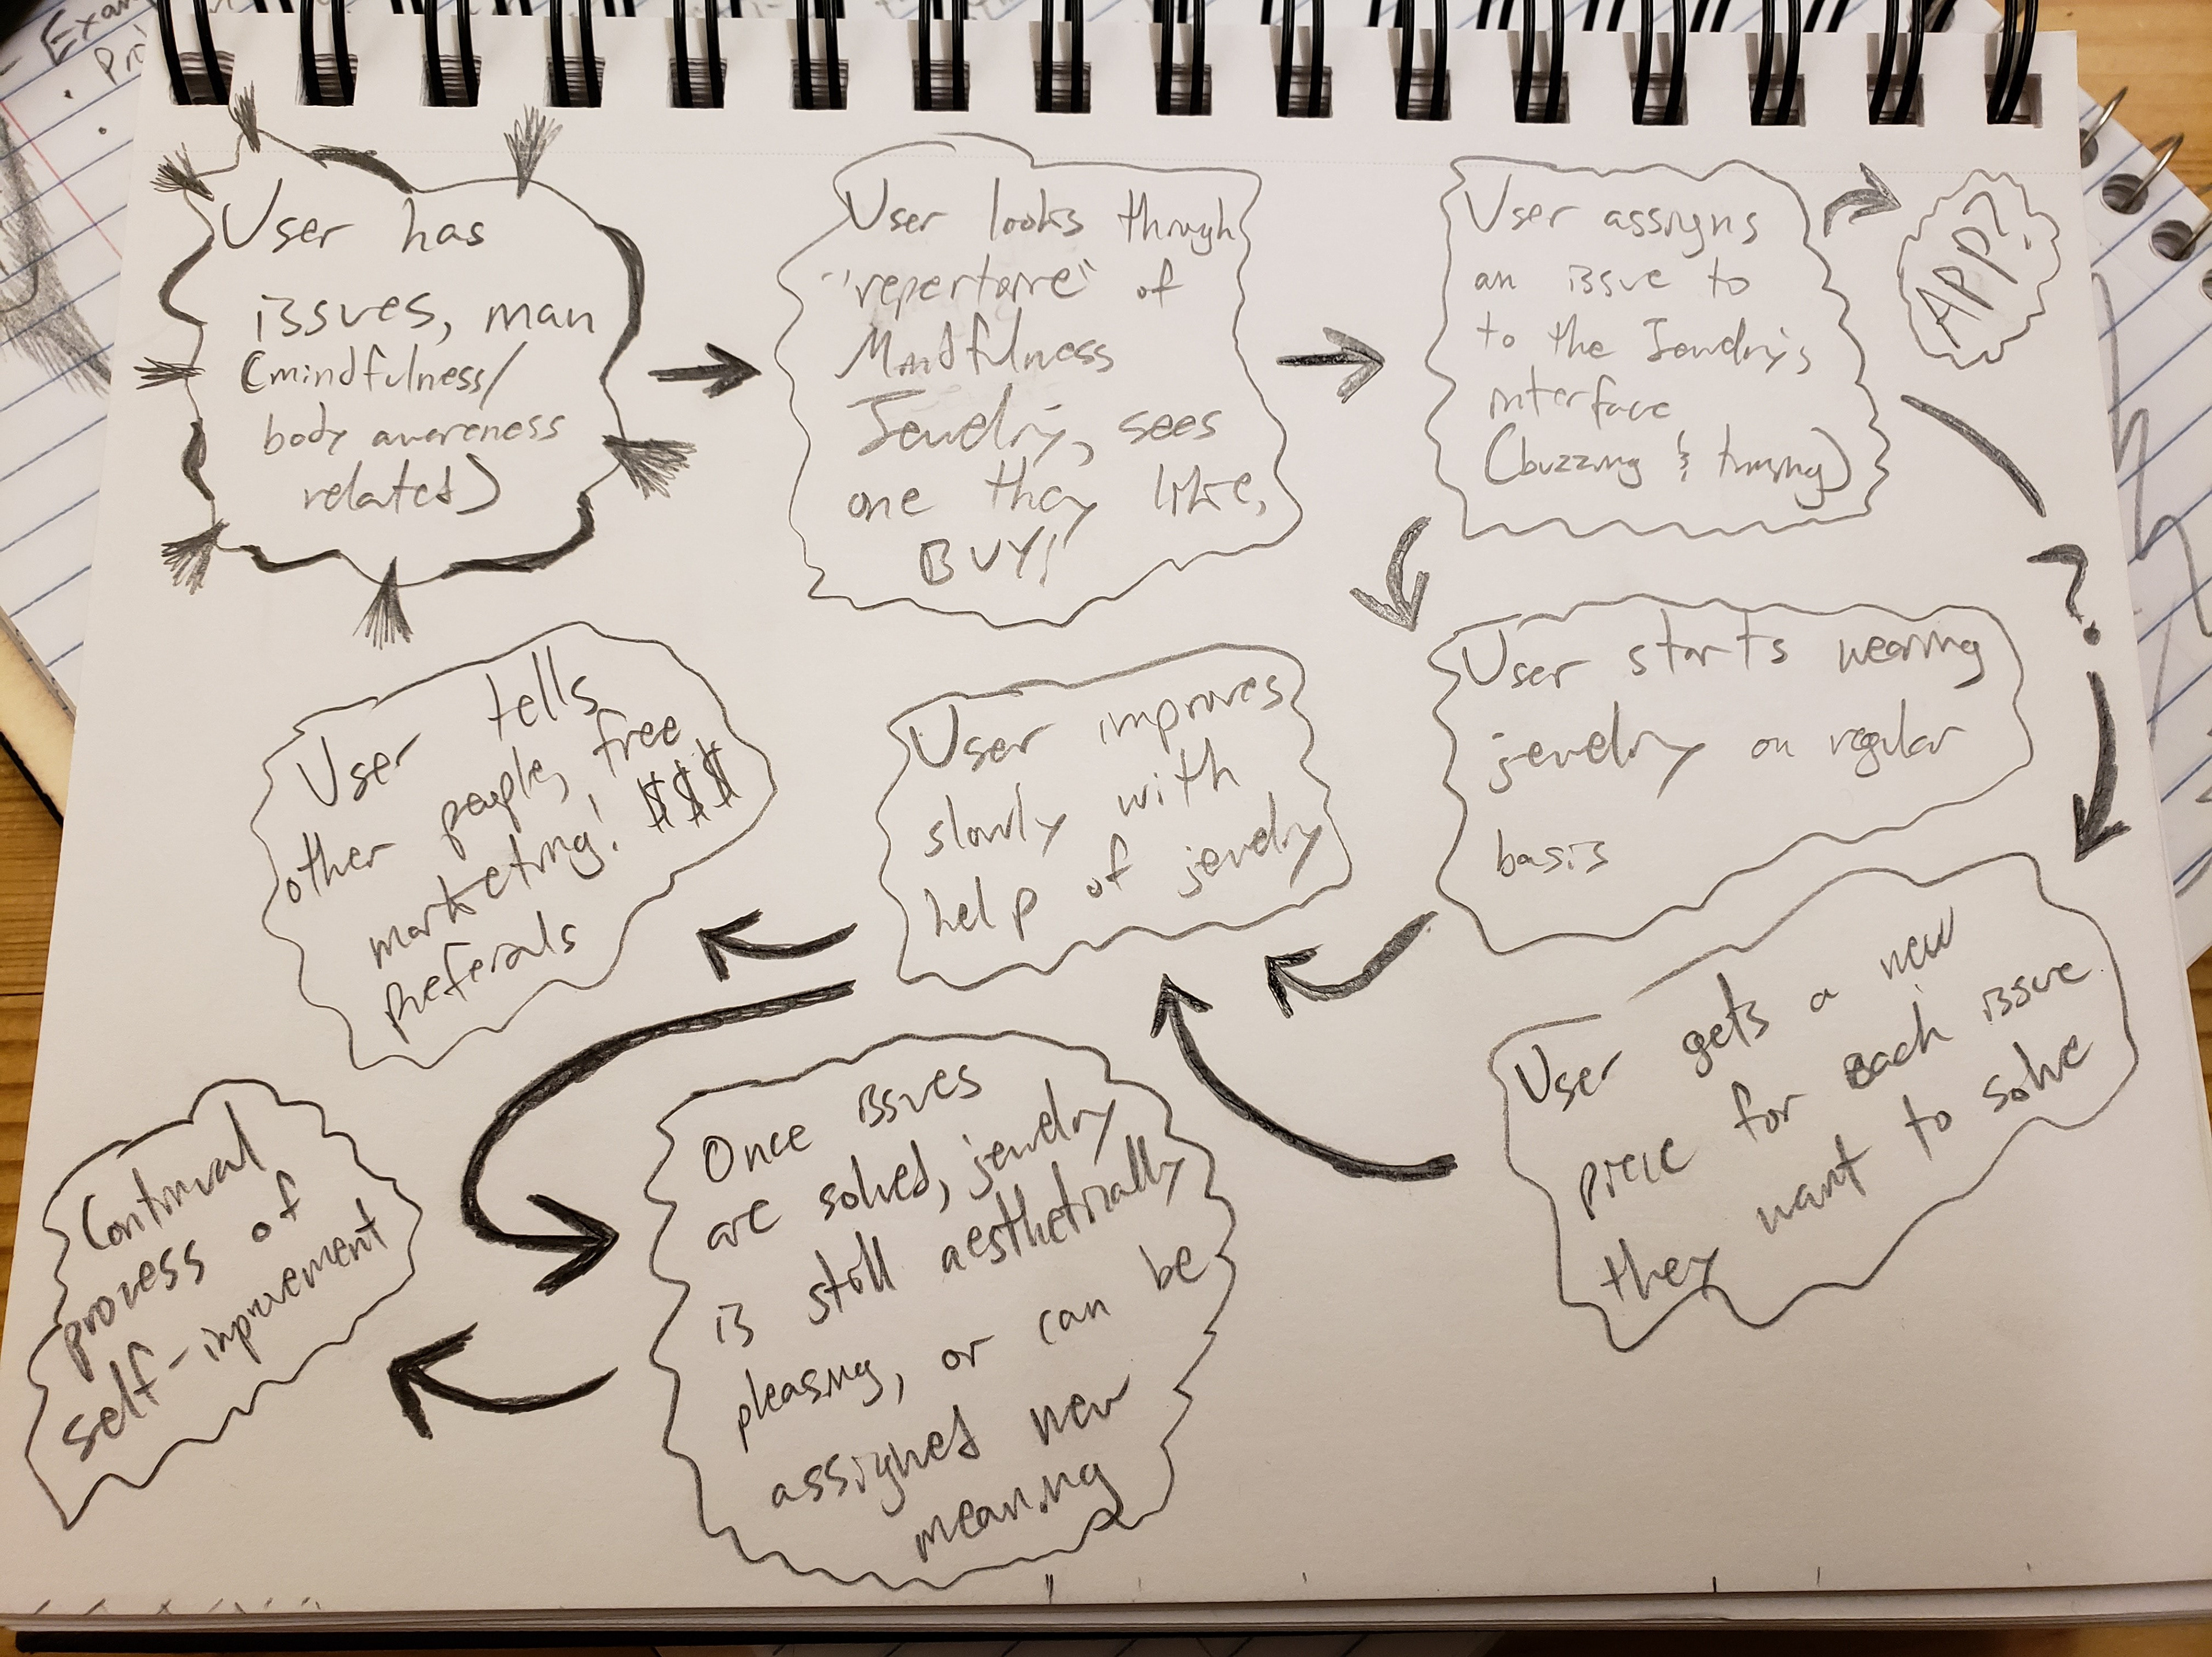 User has
issues, man
(mindfulness/
body awareness
related)
User looks through
"repertoire" of
Mindfulness
Jewelry, sees
one they like,
BUY!
User assigns
an issue to
to the Jewelry's
interface
(buzzing & timing)
APP?
?
User starts wearing
jewelry on regular
basis
User improves
slowly with
help of jewelry
User tells
other people, free
marketing! $$$
Referals
User gets a new
piece for each issue
they want to solve
Once issues
are solved, jewelry
is still aesthetically
pleasing, or can be
assigned new
meaning
Continual
process of
self-improvement